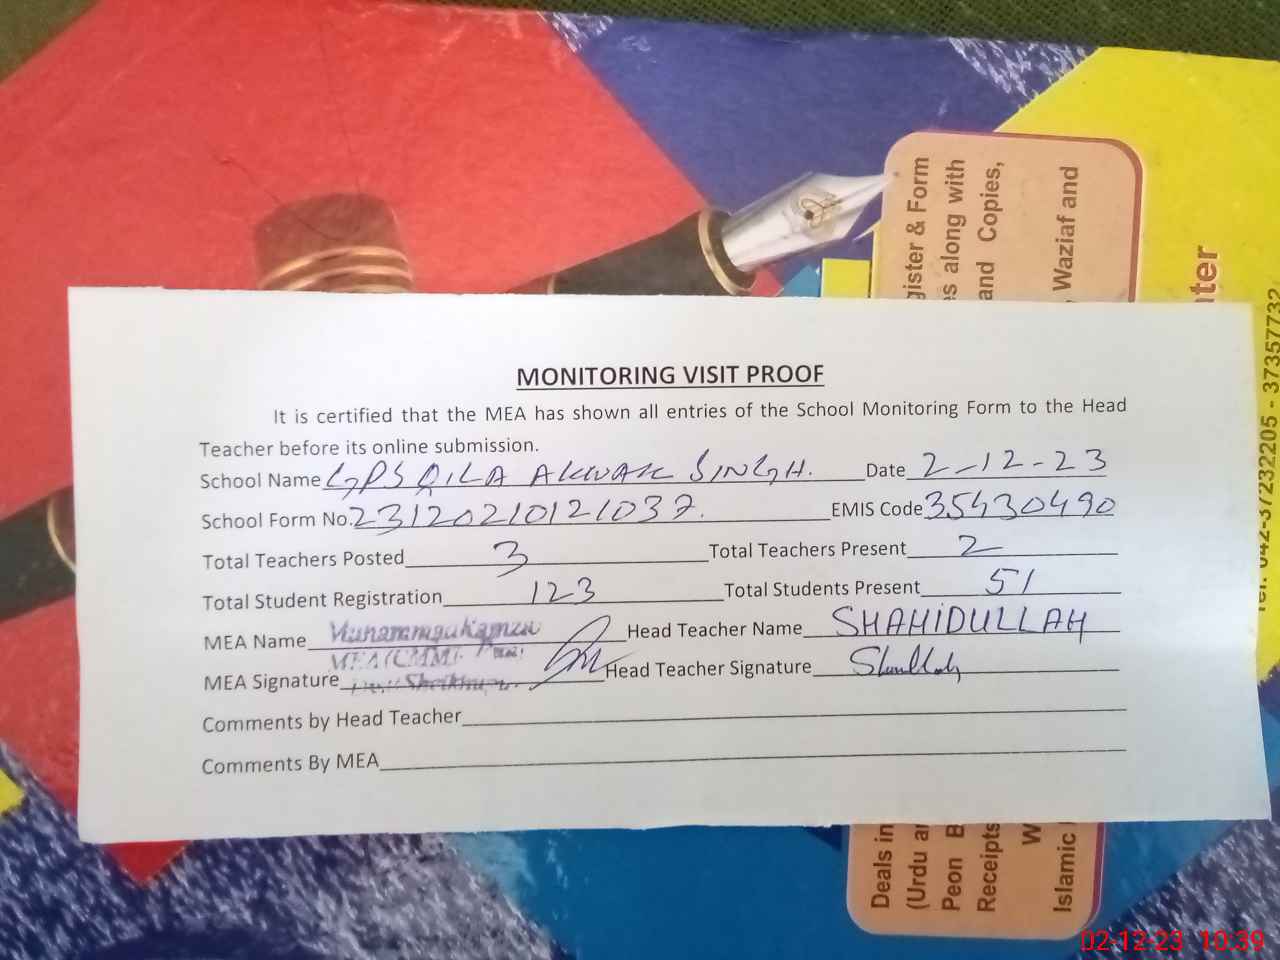 gister & Form
s along with
and Copies,
, Waziaf and
ter
Tel: 042-37232205 - 37357732
MONITORING VISIT PROOF
It is certified that the MEA has shown all entries of the School Monitoring Form to the Head
Teacher before its online submission.
School Name GPS QILA AKWAK SINGH. Date 2-12-23
School Form No. 23120210121037. EMIS Code 35430490
Total Teachers Posted 3 Total Teachers Present 2
Total Student Registration 123 Total Students Present 51
MEA Name Head Teacher Name SHAHIDULLAH
MEA Signature Head Teacher Signature
Comments by Head Teacher
Comments By MEA
Deals in
(Urdu a
Peon B
Receipts
W
Islamic
02-12-23 10:39